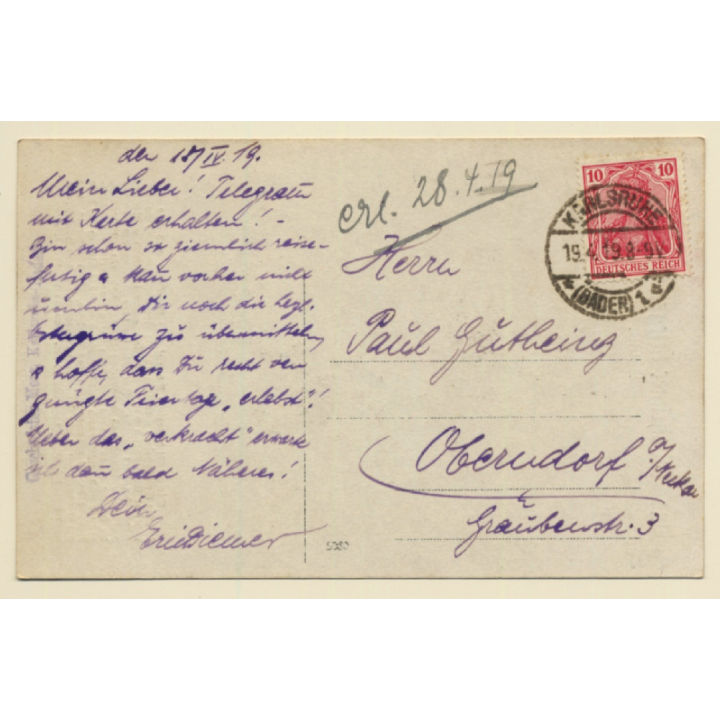 den 18/IV. 19.
Mein Lieber! Telegram
mit Karte erhalten! -
Bin schon so ziemlich reise-
fertig & kan vorher nicht
umhin, Dir noch die herzl.
zu übermitteln,
& hoffe, dass Du recht ver-
gnügte Feiertage „erlebst"!
Ueber das „verkracht" erwarte
ich dann bald Näheres!
Dein
erl. 28.4.19
Herrn
Paul Gutheinz
Oberndorf a/Neckar
Graubenstr. 3
10 10
DEUTSCHES REICH
KARLSRUHE
19.4.19.
(BADEN) 1